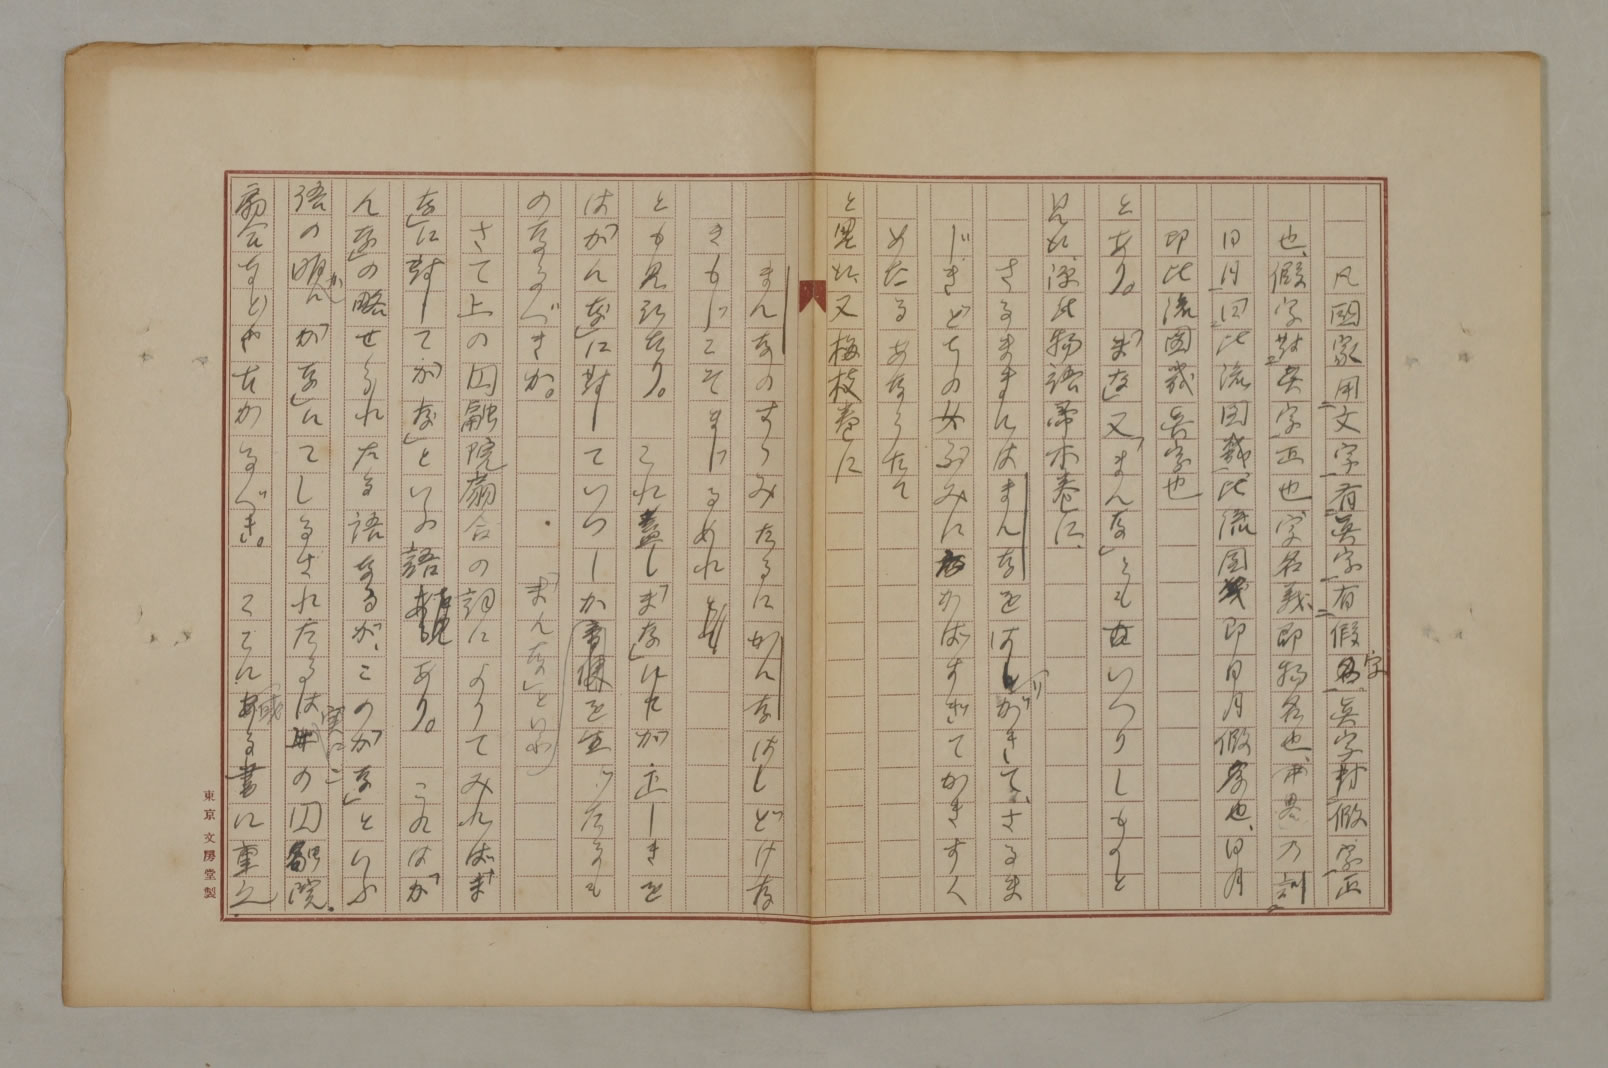 凡國家用文字有眞字有假字眞字對假字正
也假字對眞字正也字名義即物名也
日月図此流図義比流図義即日月假字也、日月
即比流図義眞字也
とあり。「まな」又「まんな」ともいへりしものと
見ゆ、源氏物語帚木巻に、
さるまゝにはまんなをはしりがきてさるま
じきどちの女ぶみになかばすぎてかきすく
めたるあなうたて
と見え、又梅枝巻に
まんなのすゝみたるにかんなはしどけな
きもじこそまじるめれ
とも見えたり。これ蓋し「まな」はたゞ正しきを
「かんな」に対していつしか音便を生じたるも
のなるべきか。「まんな」といふ
さて上の円融院扇合の詞によりてみればま
な」に対して「かな」といふ語あり。これはか
んな」の略せられたる語なるが、この「かな」といふ
語の明かに「かな」にてしるされたるは実にこの円融院
扇合などや古かるべき。ここにある書に重之
東京文房堂製